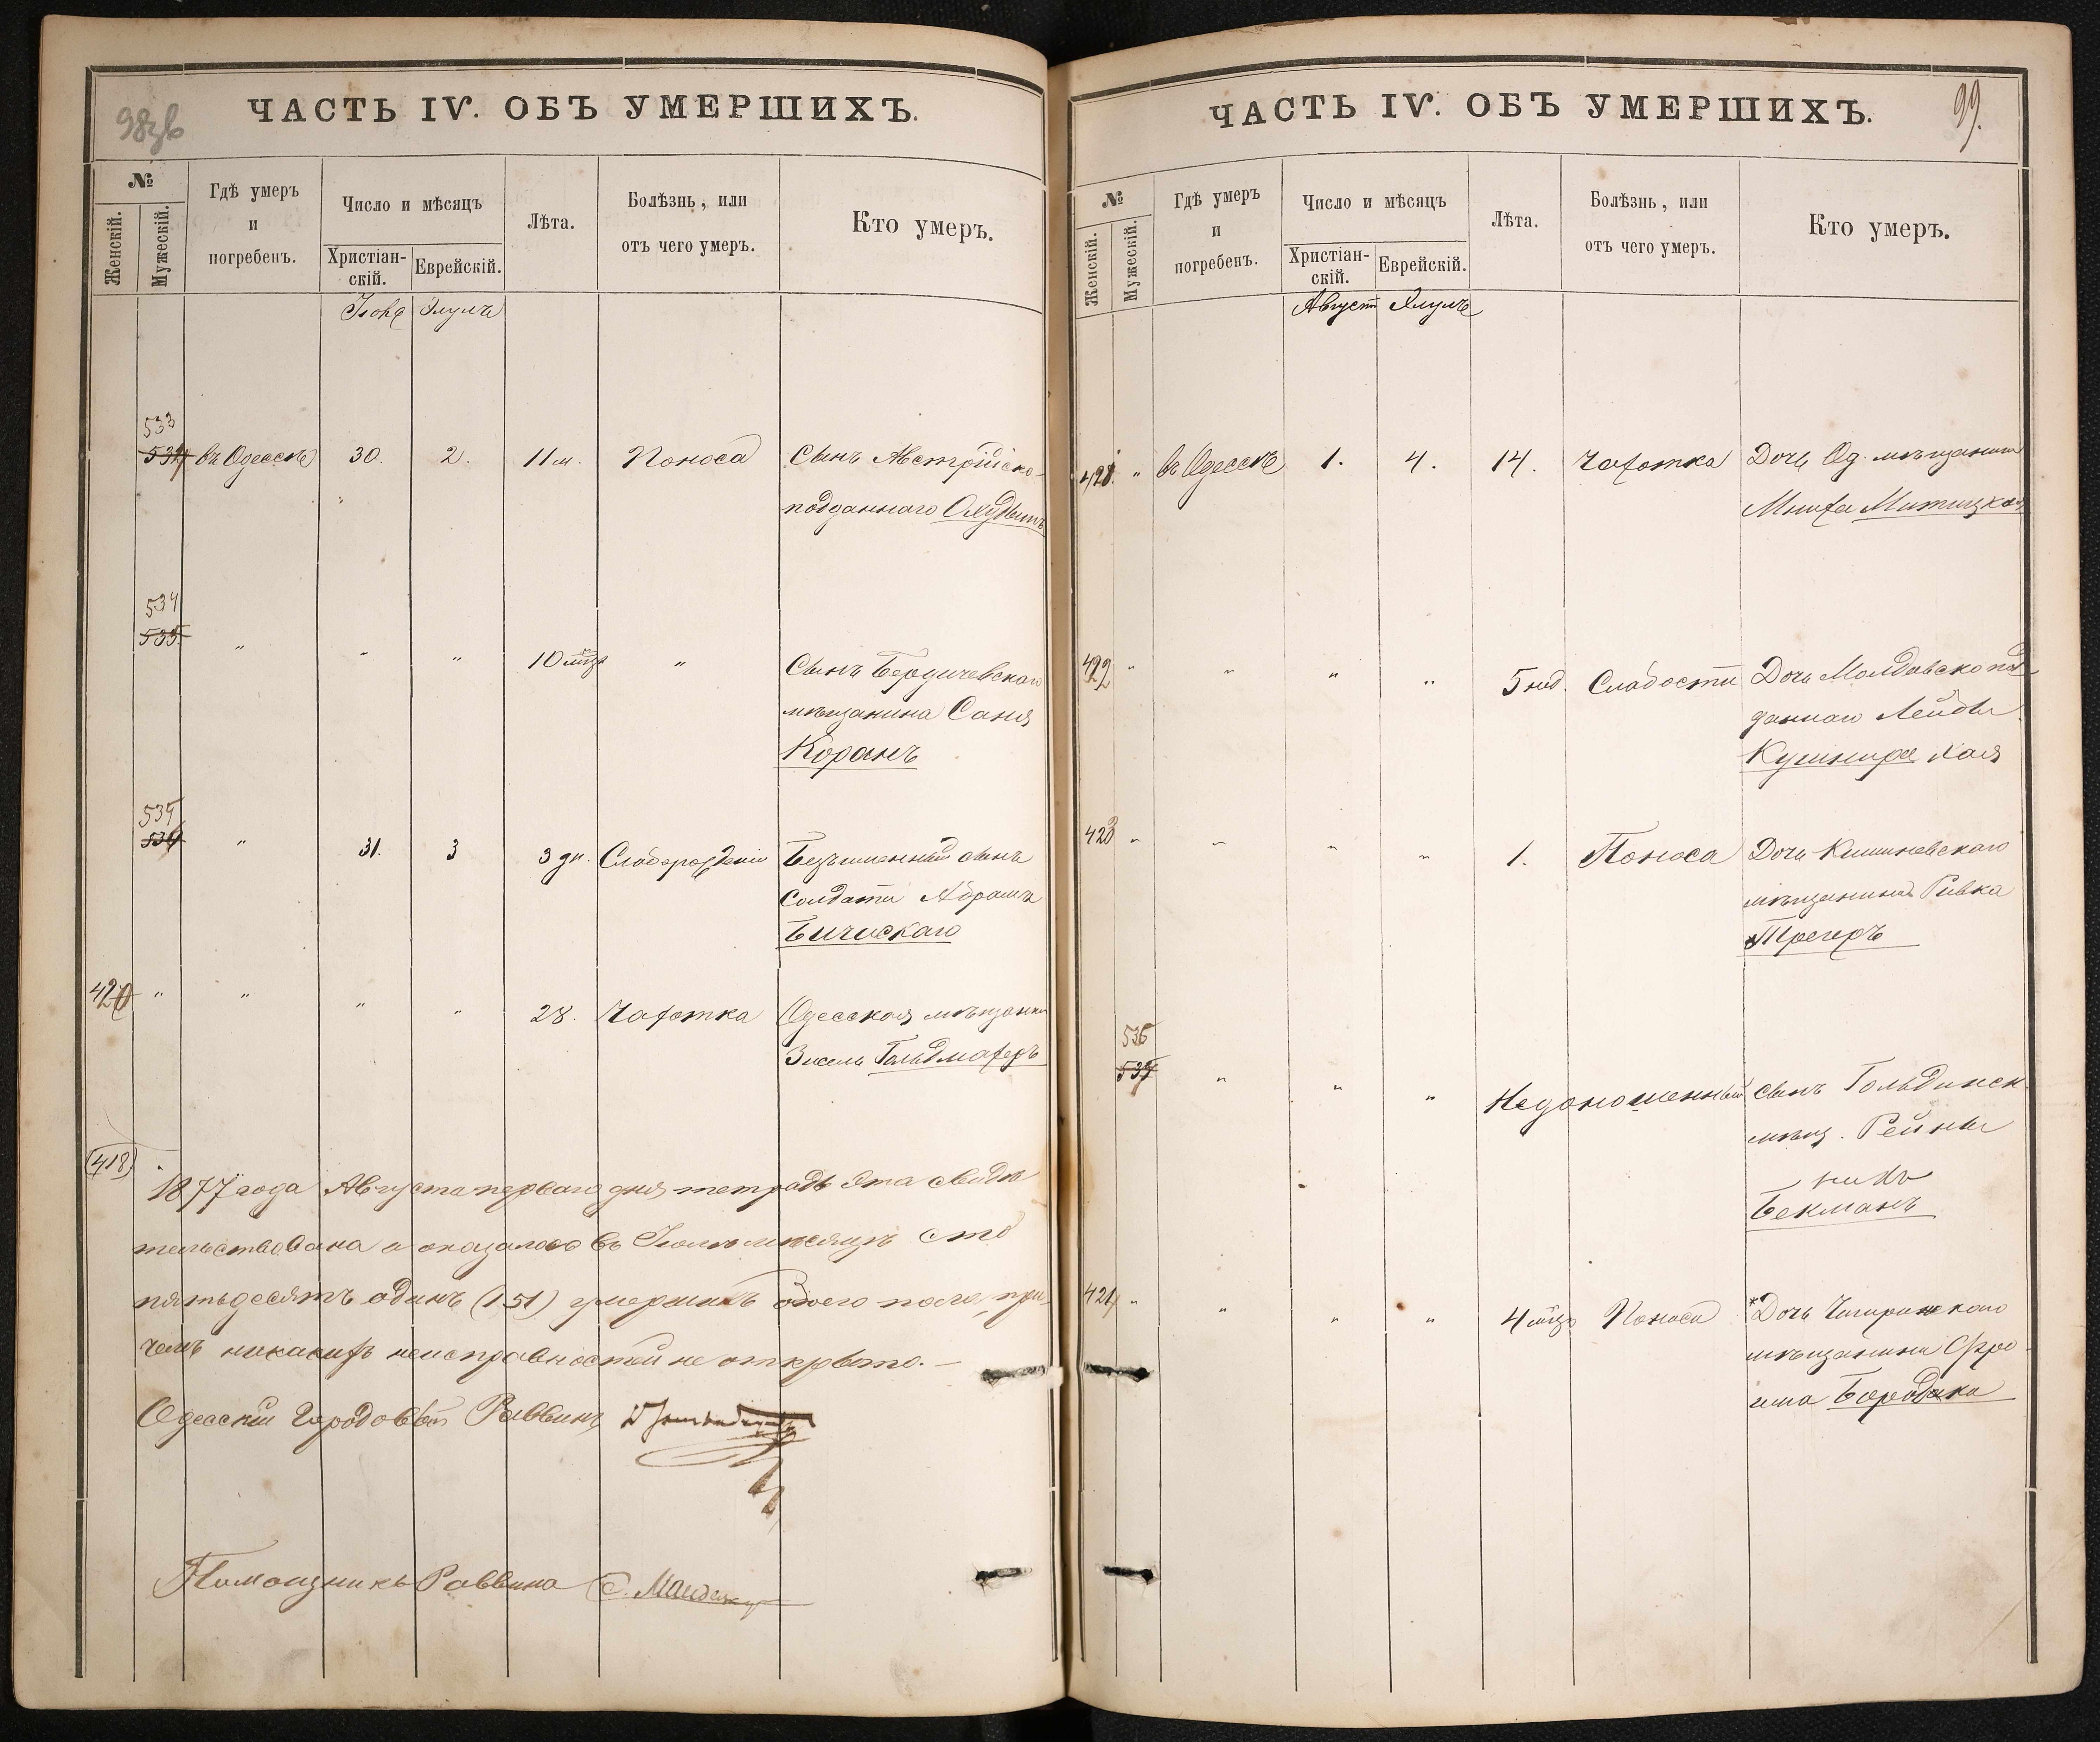 98зв
ЧАСТЬ IV. ОБЪ УМЕРШИХЪ.
№
Женскій.
Мужескій.
Гдѣ умеръ
и
погребенъ.
Число и мѣсяцъ
Христіан-
скій.
Еврейскій.
Лѣта.
Болѣзнь, или
отъ чего умеръ.
Кто умеръ.
Элулъ
533
534 въ Одессѣ 30. 2. 11 м. Поноса Сынъ Австрійско-
подданнаго
534
535 " " " 10 мцъ " Сынъ Бердичевскаго
мѣщанина Саня
Коранъ
535
536 " 31. 3 3 дн. Слаборожденія Безъименный сынъ
Солдата Абрама
Бичискаго
420 " " " " 28. Чахотка Одесская мѣщанка
Зисель Гольдмахеръ
(418)
1877 года Августа перваго дня тетрадь эта свидѣ
тельствована и оказалось въ Іюлѣ мѣсяцѣ сто
пятьдесятъ одинъ (151) умершихъ обоего пола, при
чемъ никакихъ неисправностей не открыто. —
Одесскій Городовый Раввинъ
Помощникъ Раввина С.
99.
ЧАСТЬ IV. ОБЪ УМЕРШИХЪ.
№
Женскій.
Мужескій.
Гдѣ умеръ
и
погребенъ.
Число и мѣсяцъ
Христіан-
скій.
Еврейскій.
Лѣта.
Болѣзнь, или
отъ чего умеръ.
Кто умеръ.
Августъ Элулъ
421. " въ Одессѣ 1. 4. 14. Чахотка Дочь Од. мѣщанина
Мниха Митницкая
422 " " " " 5 нед. Слабости Дочь Молдавско под
даннаго Лейбы
Кушнира Хая
423 " " " " 1. Поноса Дочь Кишиневскаго
мѣщанина Ривка
Трегеръ
536
537 " " " Недоношенный сынъ Гольдинск
мѣщ. Рейны
Бекманъ
424 " " " " 4 мцъ Поноса *Дочь Чигиринскаго
мѣщанина Фро
има Бородака